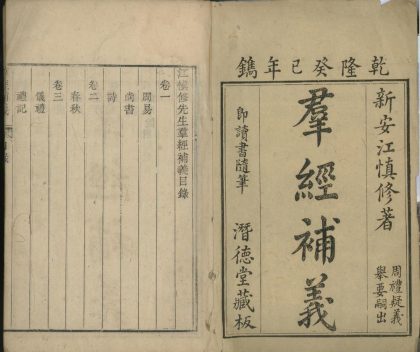 乾隆癸巳年鐫
新安江慎修著
周禮疑義
舉要嗣出
羣經補義
即讀書隨筆
潛德堂藏板
江慎修先生羣經補義目錄
卷一
周易
尚書
詩
卷二
春秋
卷三
儀禮
禮記